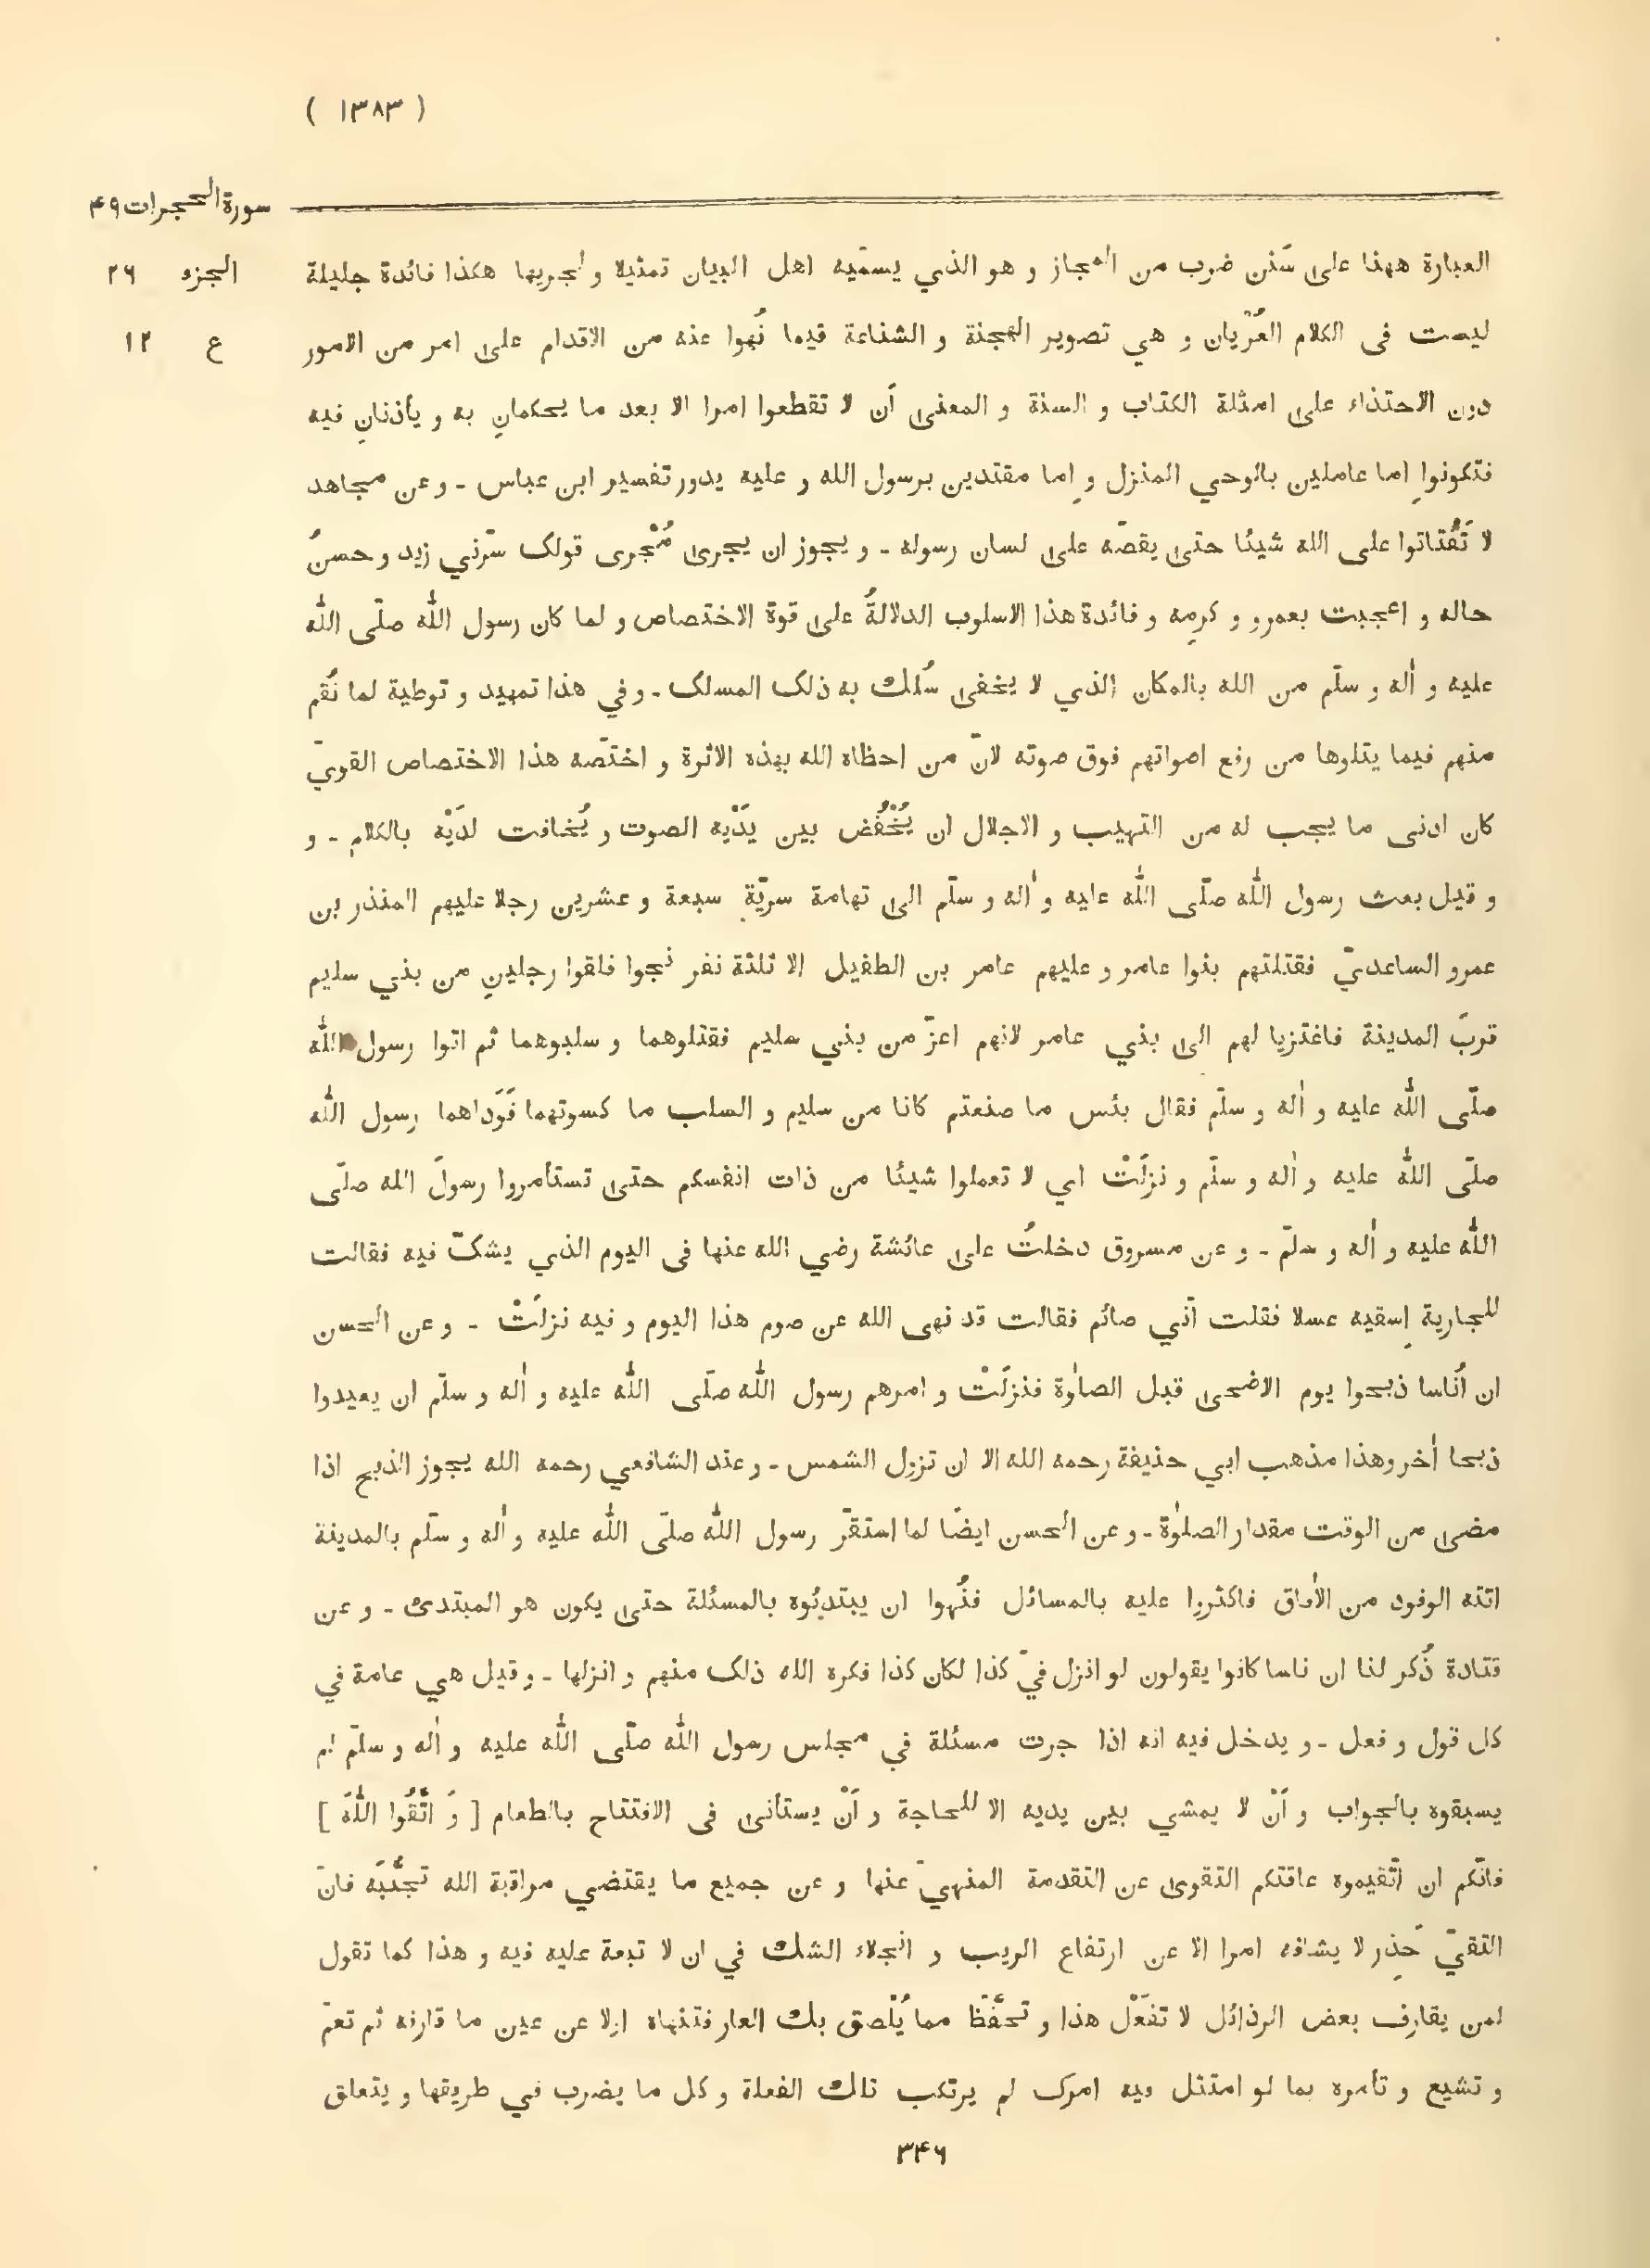 ( ١٣٨٣ )
سورة الحجرات ۴۹
الجزء ۲۶
ع ۱۲
العبارة ههنا على سَنن ضرب من المجاز و هو الذي يسمّيه اهل البيان تمثيلا و لجريها هكذا فائدة جليلة
ليست فى الكلام العُرْيان و هي تصوير الهجنة و الشناعة فيما نُهوا عنه من الاقدام على امر من الامور
دون الاحتذاء على امثلة الكتاب و السنة و المعنى أن لا تقطعوا امرا الا بعد ما يحكمانِ به و يأذنانِ فيه
فتكونوا إما عاملين بالوحي المنزل و إما مقتدين برسول الله و عليه يدور تفسير ابن عباس - و عن مجاهد
لا تَفْتاتوا على الله شيئا حتى يقصّه على لسان رسوله - و يجوز ان يجرى مُجْرى قولک سرّني زيد و حسنُ
حاله و اعجبت بعمرو و كرمِه و فائدة هذا الاسلوب الدلالةُ على قوة الاختصاص و لما كان رسول اللّٰه صلّى اللّٰه
عليه و اٰله و سلّم من الله بالمكان الذي لا يخفى سُلك به ذلک المسلک - و في هذا تمهيد و توطية لما نُقم
منهم فيما يتلوها من رفع اصواتهم فوق صوته لانّ من احظاه الله بهذه الاثرة و اختصّه هذا الاختصاص القويّ
كان ادنى ما يجب له من التهيب و الاجلال ان يُخْفَض بين يدَيْه الصوت و يُخافت لديْه بالكلام - و
و قيل بعث رسول اللّٰه صلّى اللّٰه عليه و اٰله و سلّم الى تهامة سريّة سبعة و عشرين رجلا عليهم المنذر بن
عمرو الساعديّ فقتلتهم بنوا عامر و عليهم عامر بن الطفيل الا ثلثة نفر نجوا فلقوا رجلينِ من بني سليم
قربَ المدينة فاعتزيا لهم الى بني عامر لانهم اعزّ من بني سليم فقتلوهما و سلبوهما ثم اتوا رسول اللّٰه
صلّى اللّٰه عليه و اٰله و سلّم فقال بئس ما صنعتم كانا من سليم و السلب ما كسوتهما فَوَداهما رسول اللّٰه
صلّى اللّٰه عليه و اٰله و سلّم و نزلَتْ اي لا تعملوا شيئا من ذات انفسكم حتى تستأمروا رسولَ الله صلّى
اللّٰه عليه و اٰله و سلّم - و عن مسروق دخلتُ على عائشة رضي الله عنها فى اليوم الذي يشكّ فيه فقالت
للجارية إسقيه عسلا فقلت انّي صائم فقالت قد نهى الله عن صوم هذا اليوم و فيه نزلَتْ - و عن الحسن
ان اُناسا ذبحوا يوم الاضحى قبل الصلٰوة فنزلَتْ و امرهم رسول اللّٰه صلّى اللّٰه عليه و اٰله و سلّم ان يعيدوا
ذبحا اٰخر و هذا مذهب ابي حنيفة رحمه الله الا ان تزول الشمس - و عند الشافعي رحمه الله يجوز الذبح اذا
مضى من الوقت مقدار الصلٰوة - و عن الحسن ايضًا لما استقرّ رسول اللّٰه صلّى اللّٰه عليه و اٰله و سلّم بالمدينة
اتته الوفود من الاٰفاق فاكثروا عليه بالمسائل فنُهوا ان يبتدئوه بالمسئلة حتى يكون هو المبتدئ - و عن
قتادة ذُكر لنا ان ناسا كانوا يقولون لو انزل فيّ كذا لكان كذا فكره الله ذلک منهم و انزلها - و قيل هي عامة في
كل قول و فعل - و يدخل فيه انه اذا جرت مسئلة في مجلس رسول اللّٰه صلّى اللّٰه عليه و اٰله و سلّم لم
يسبقوه بالجواب و أنْ لا يمشي بين يديه الا للحاجة و أنْ يستأنى فى الافتتاح بالطعام [ وَ اتَّقُوا اللّٰهَ ]
فانّكم ان اتّقيموه عاقتكم التقوى عن التقدمة المنهيّ عنها و عن جميع ما يقتضي مراقبة الله تجنُّبَه فانّ
التقيّ حَذِر لا يشافه امرا الا عن ارتفاع الريب و انجلاء الشك في ان لا تبعة عليه فيه و هذا كما تقول
لمن يقارِف بعض الرذائل لا تفعَلْ هذا و تحفَّظ مما يُلْصق بك العار فتنهاه اولا عن عين ما قارفه ثم تعمّ
و تشيع و تأمره بما لو امتثل فيه امرک لم يرتكب تلك الفعلة و كل ما يضرب في طريقها و يتعلق
۳۴۶